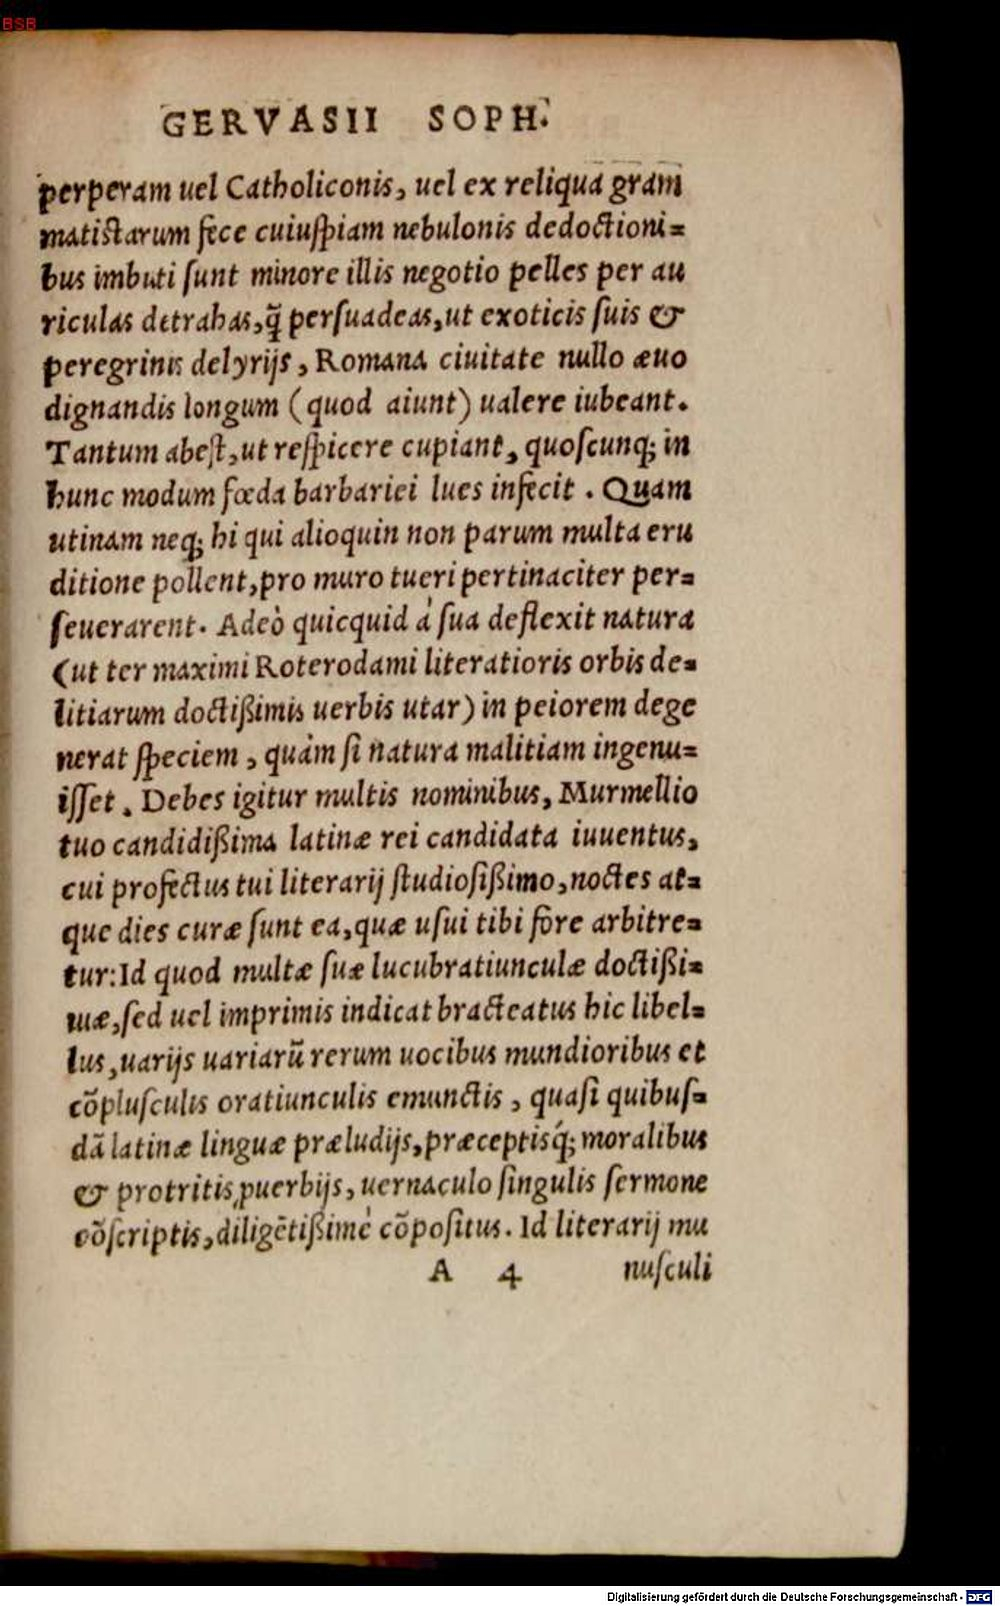 BSB
GERVASII SOPH.
perperam uel Catholiconis, uel ex reliqua gram
matiſtarum fece cuiuſpiam nebulonis dedoctioni=
bus imbuti ſunt minore illis negotio pelles per au
riculas detrahas, q̃ perſuadeas, ut exoticis ſuis &
peregrinis delyrijs, Romana ciuitate nullo æuo
dignandis longum (quod aiunt) ualere iubeant.
Tantum abeſt, ut reſpicere cupiant, quoſcunq; in
hunc modum fœda barbariei lues infecit. Quam
utinam neq; hi qui alioquin non parum multa eru
ditione pollent, pro muro tueri pertinaciter per=
ſeuerarent. Adeò quicquid à ſua deflexit natura
(ut ter maximi Roterodami literatioris orbis de=
litiarum doctißimis uerbis utar) in peiorem dege
nerat ſpeciem, quàm ſi natura malitiam ingenu=
iſſet. Debes igitur multis nominibus, Murmellio
tuo candidißima latinæ rei candidata iuuentus,
cui profectus tui literarij ſtudioſißimo, noctes at=
que dies curæ ſunt ea, quæ uſui tibi fore arbitre=
tur: Id quod multæ ſuæ lucubratiunculæ doctißi=
mæ, ſed uel imprimis indicat bracteatus hic libel=
lus, uarijs uariarũ rerum uocibus mundioribus et
cõpluſculis oratiunculis emunctis, quaſi quibuſ=
dã latinæ linguæ præludijs, præceptisq́; moralibus
& protritis ꝓuerbijs, uernaculo ſingulis ſermone
cõſcriptis, diligẽtißimè cõpoſitus. Id literarij mu
A 4 nuſculi
Digitalisierung gefördert durch die Deutsche Forschungsgemeinschaft - DFG